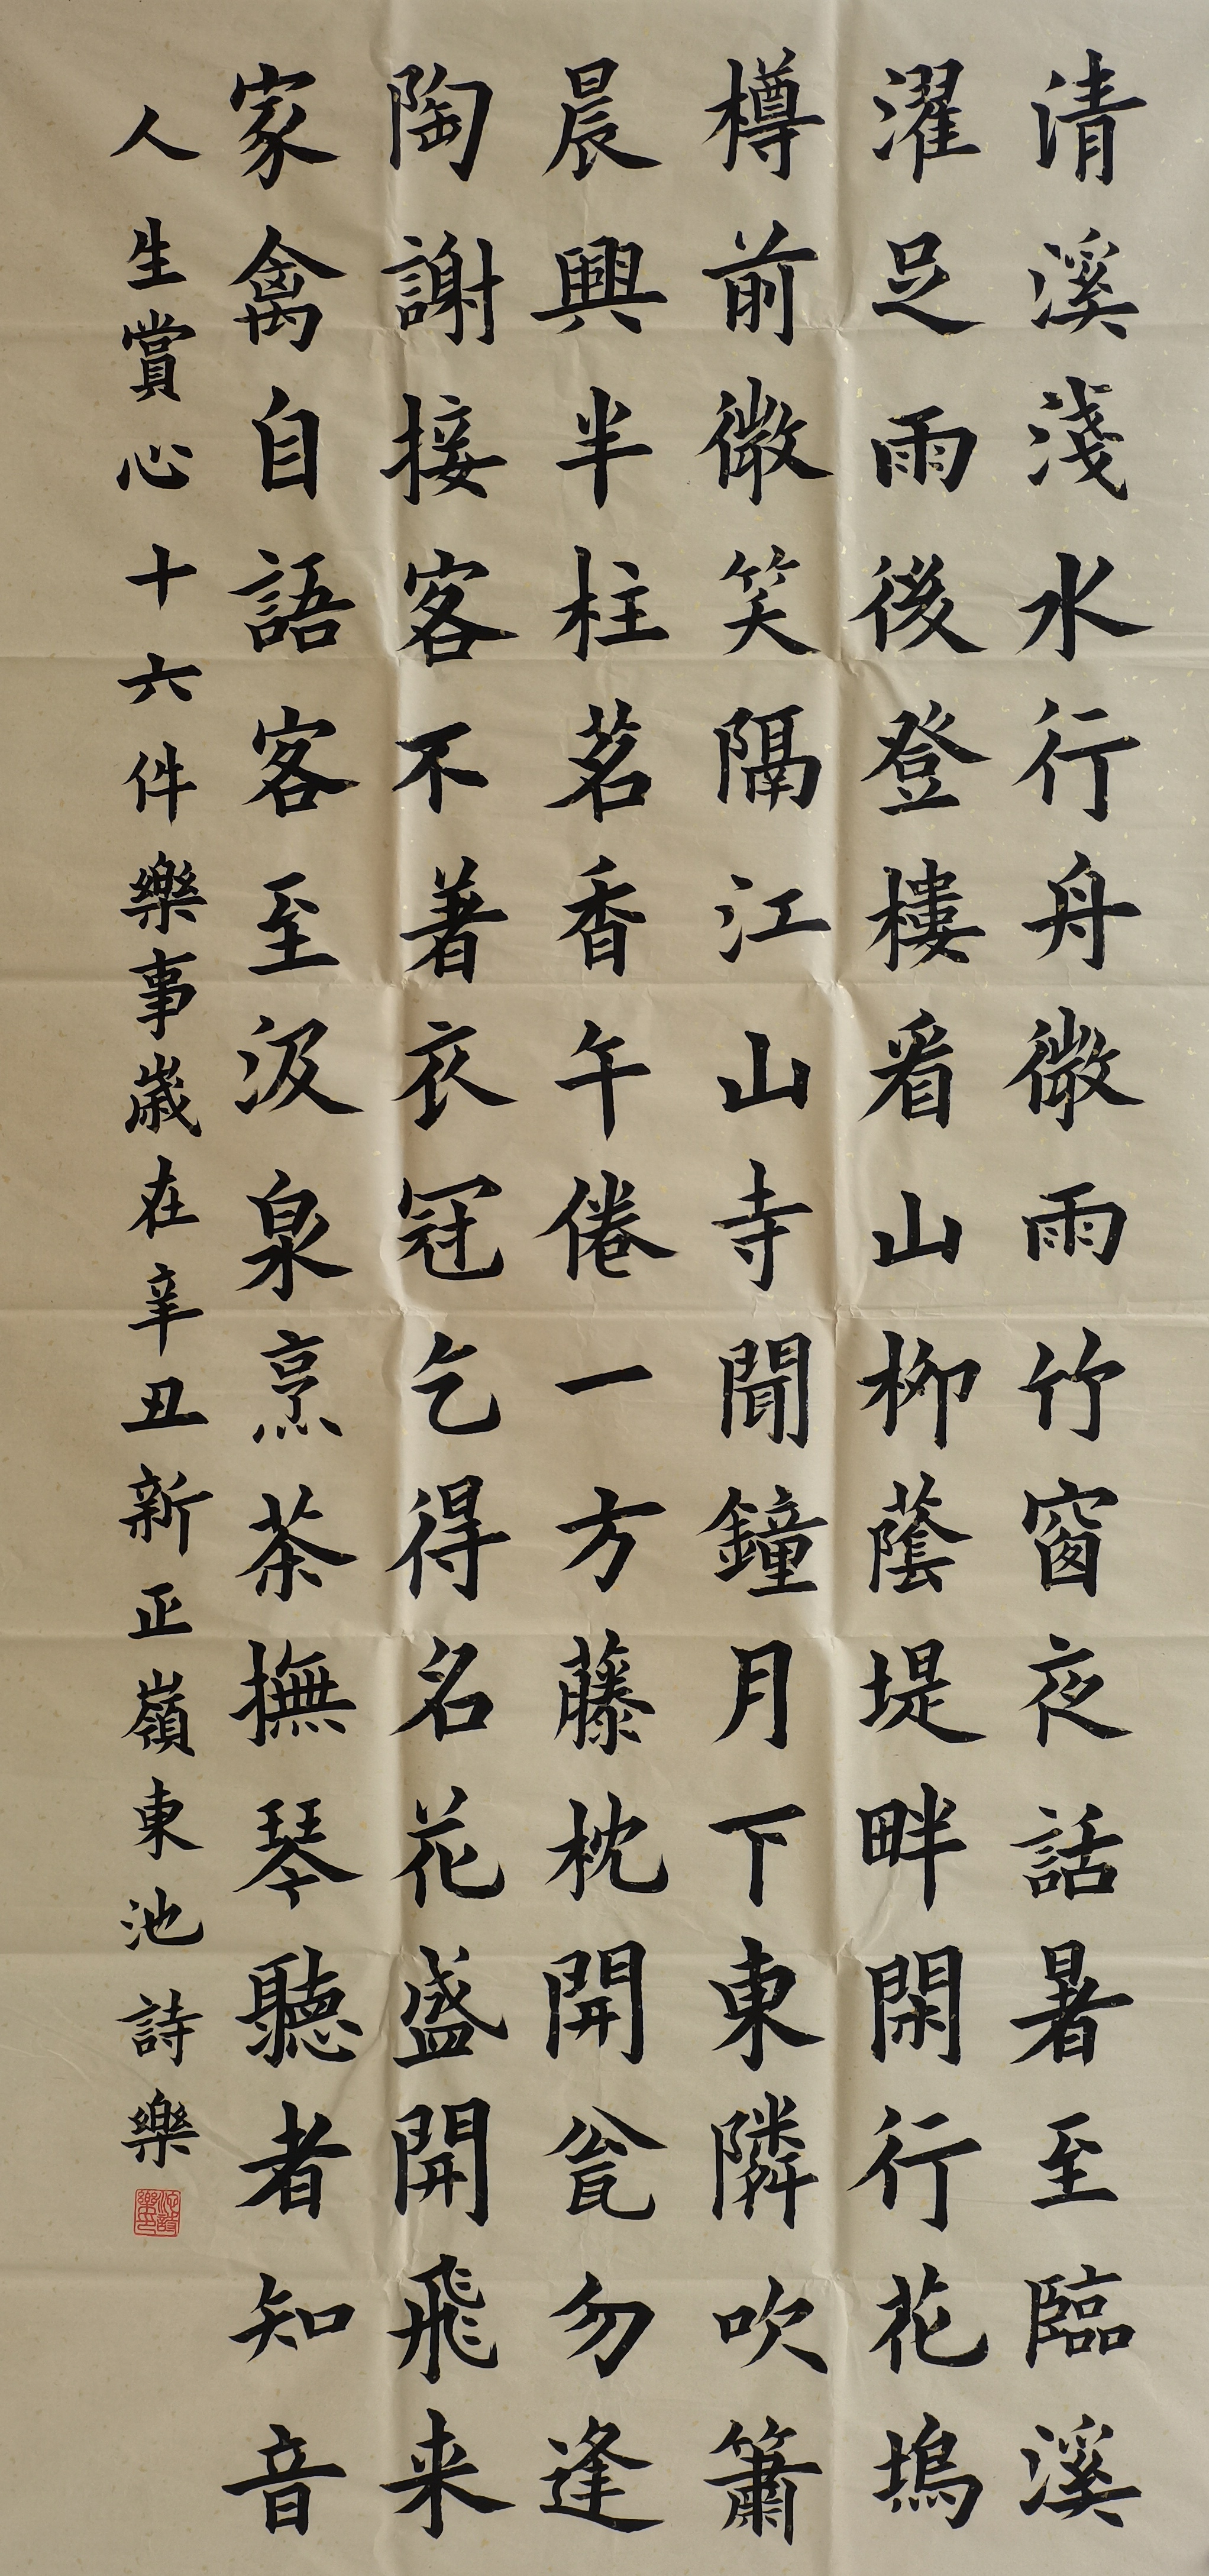 清溪淺水行舟微雨竹窗夜話暑至臨溪
濯足雨後登樓看山柳蔭堤畔閑行花塢
樽前微笑隔江山寺聞鐘月下東隣吹簫
晨興半柱茗香午倦一方藤枕開瓮勿逢
陶謝接客不著衣冠乞得名花盛開飛来
家禽自語客至汲泉烹茶撫琴聽者知音
人生賞心十六件樂事歲在辛丑新正嶺東池詩樂